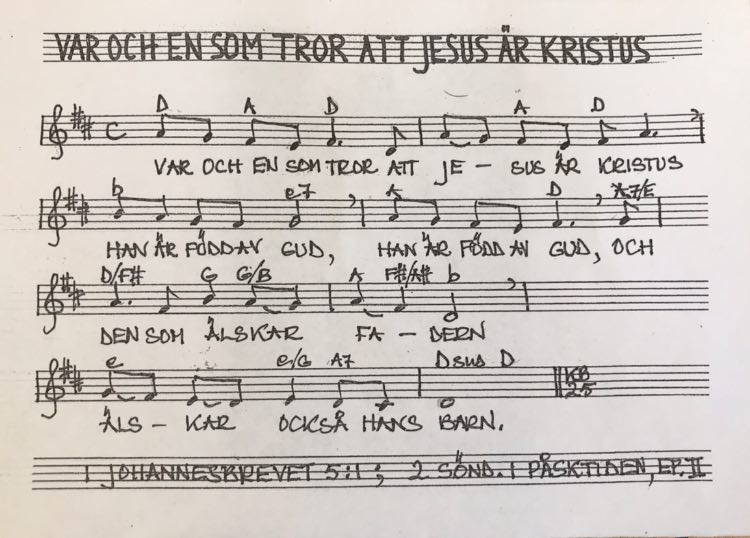 VAR OCH EN SOM TROR ATT JESUS ÄR KRISTUS
D A D A D
C
VAR OCH EN SOM TROR ATT JE - SUS ÄR KRISTUS
b e7 A D A7/E
HAN ÄR FÖDD AV GUD, HAN ÄR FÖDD AV GUD, OCH
D/F# G G/B A F#/A# b
DEN SOM ÄLSKAR FA - DERN
e e/G A7 Dsus D
KGB
2-5
ÄLS - KAR OCKSÅ HANS BARN.
1 JOHANNESBREVET 5:1; 2 SÖND. I PÅSKTIDEN, EP. II